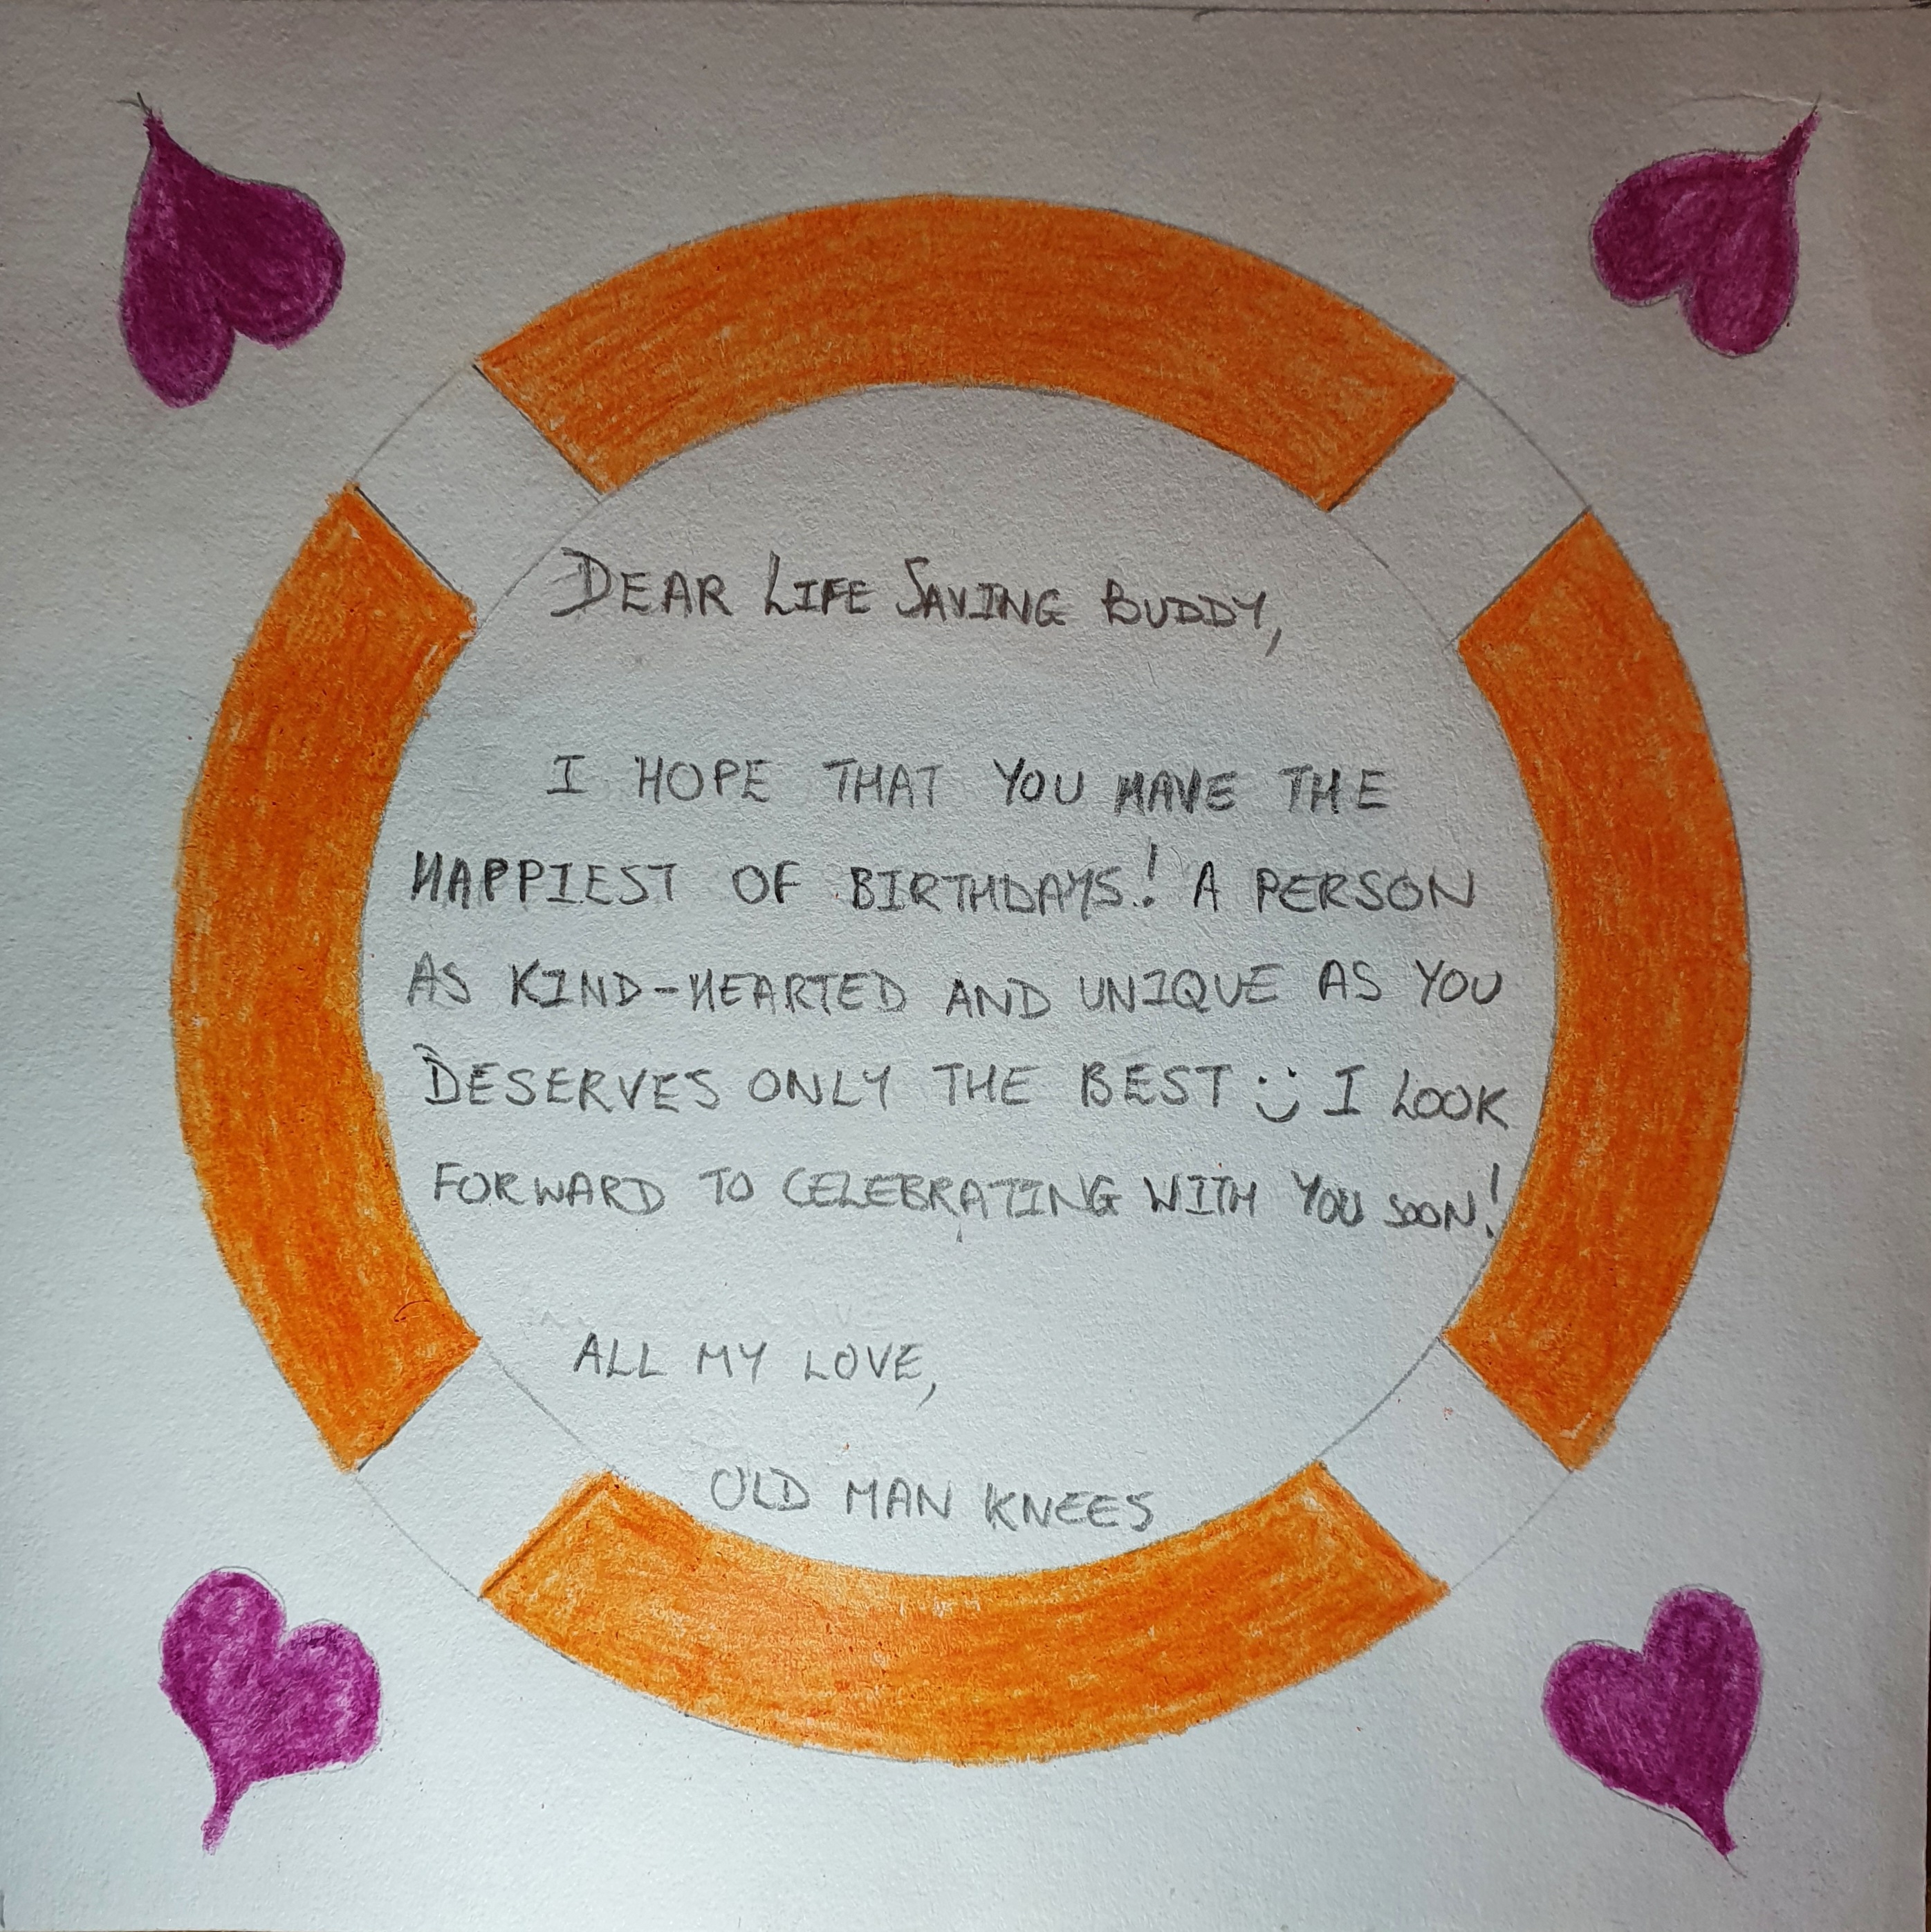 DEAR LIFE SAVING BUDDY,
I HOPE THAT YOU HAVE THE
HAPPIEST OF BIRTHDAYS! A PERSON
AS KIND-HEARTED AND UNIQUE AS YOU
DESERVES ONLY THE BEST :) I LOOK
FORWARD TO CELEBRATING WITH YOU SOON!
ALL MY LOVE,
OLD MAN KNEES